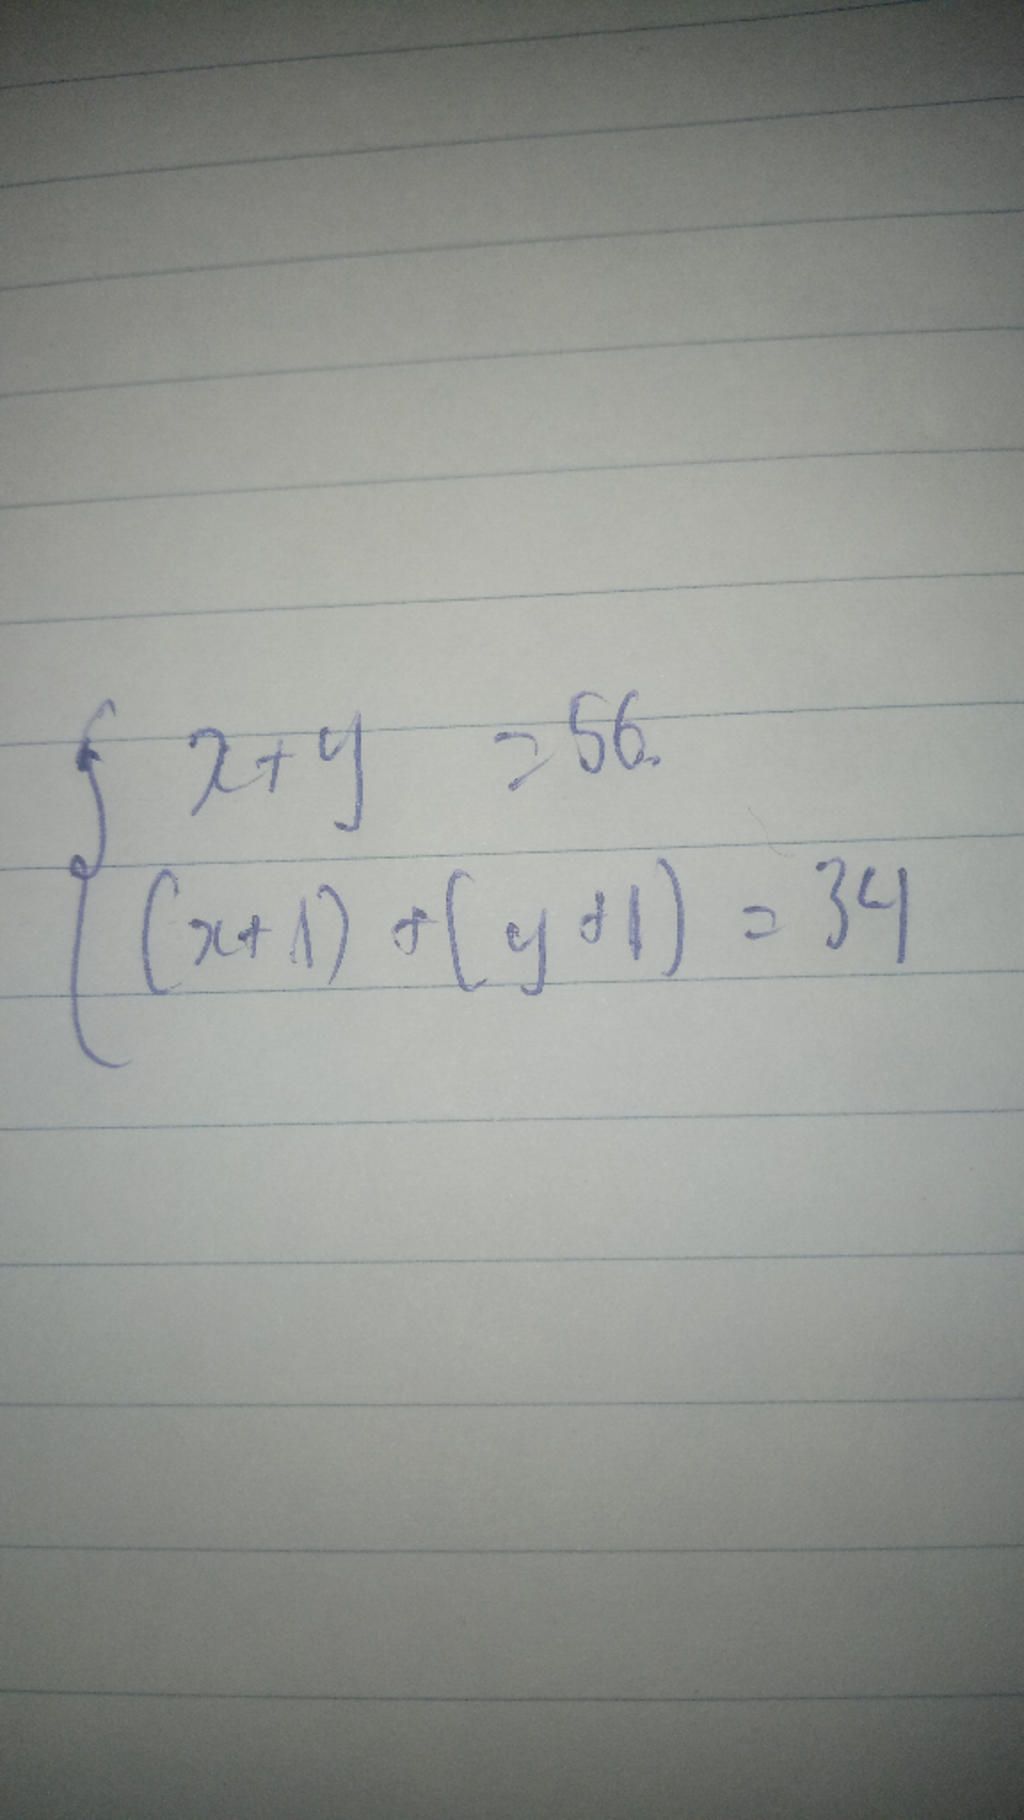 x+y = 56.
(x+1) + (y+1) = 34